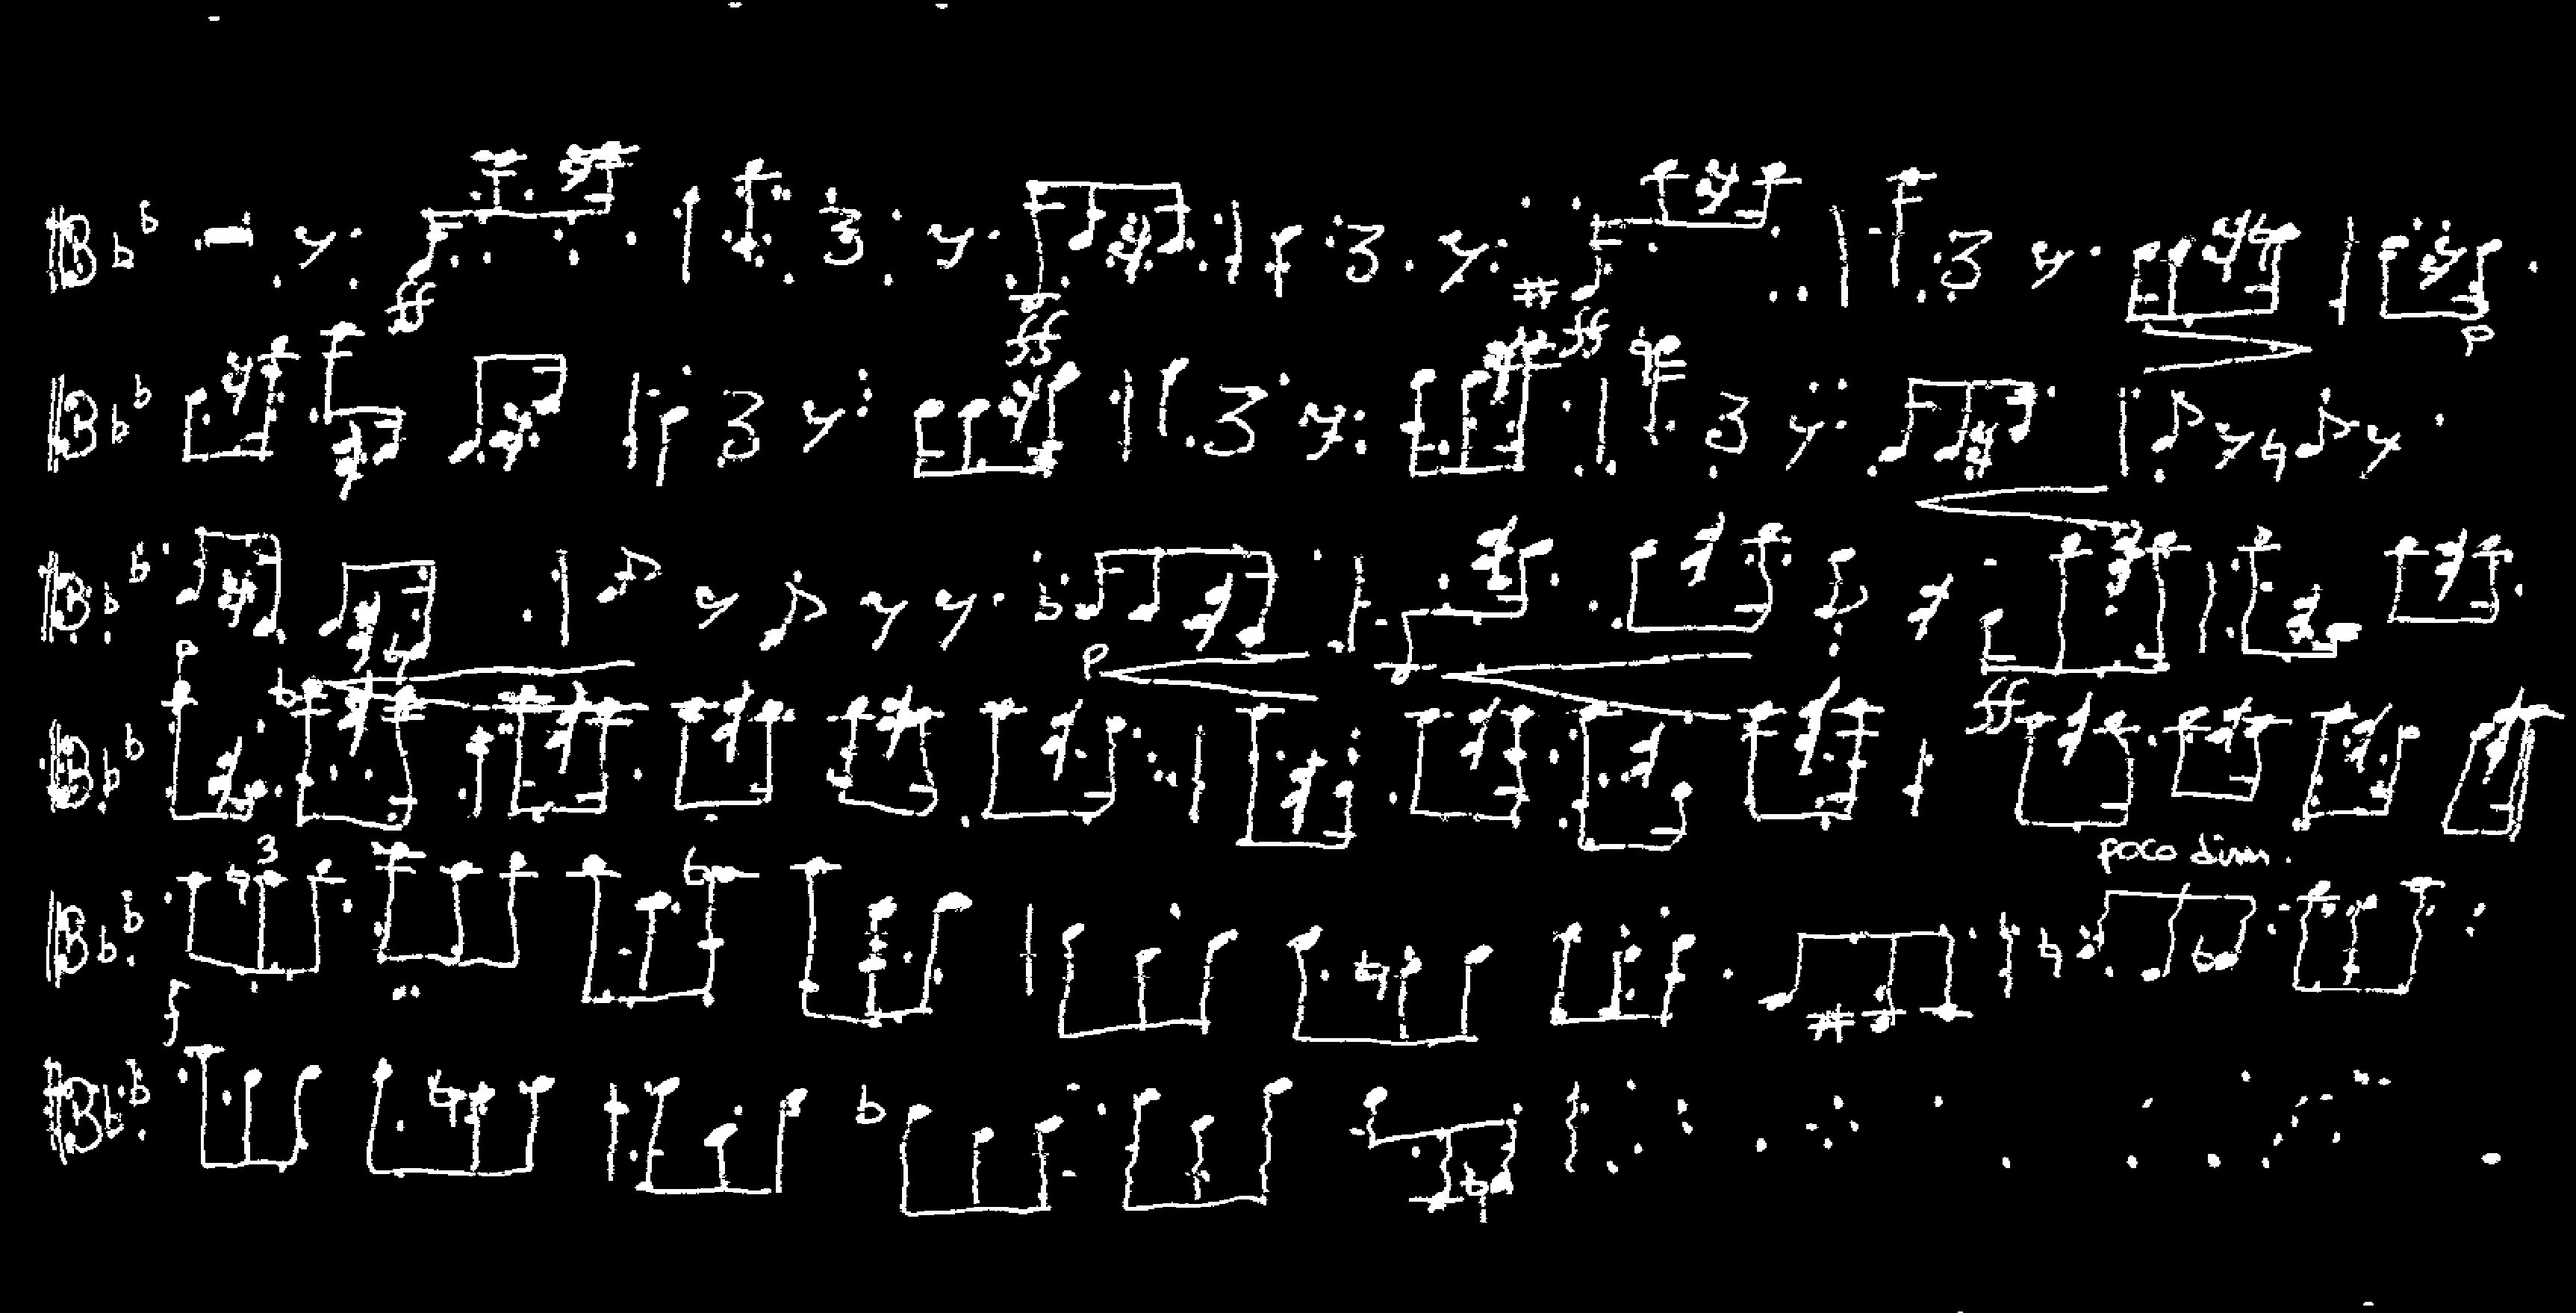 ff ff ff
p
p p ff
3 poco dim.
f